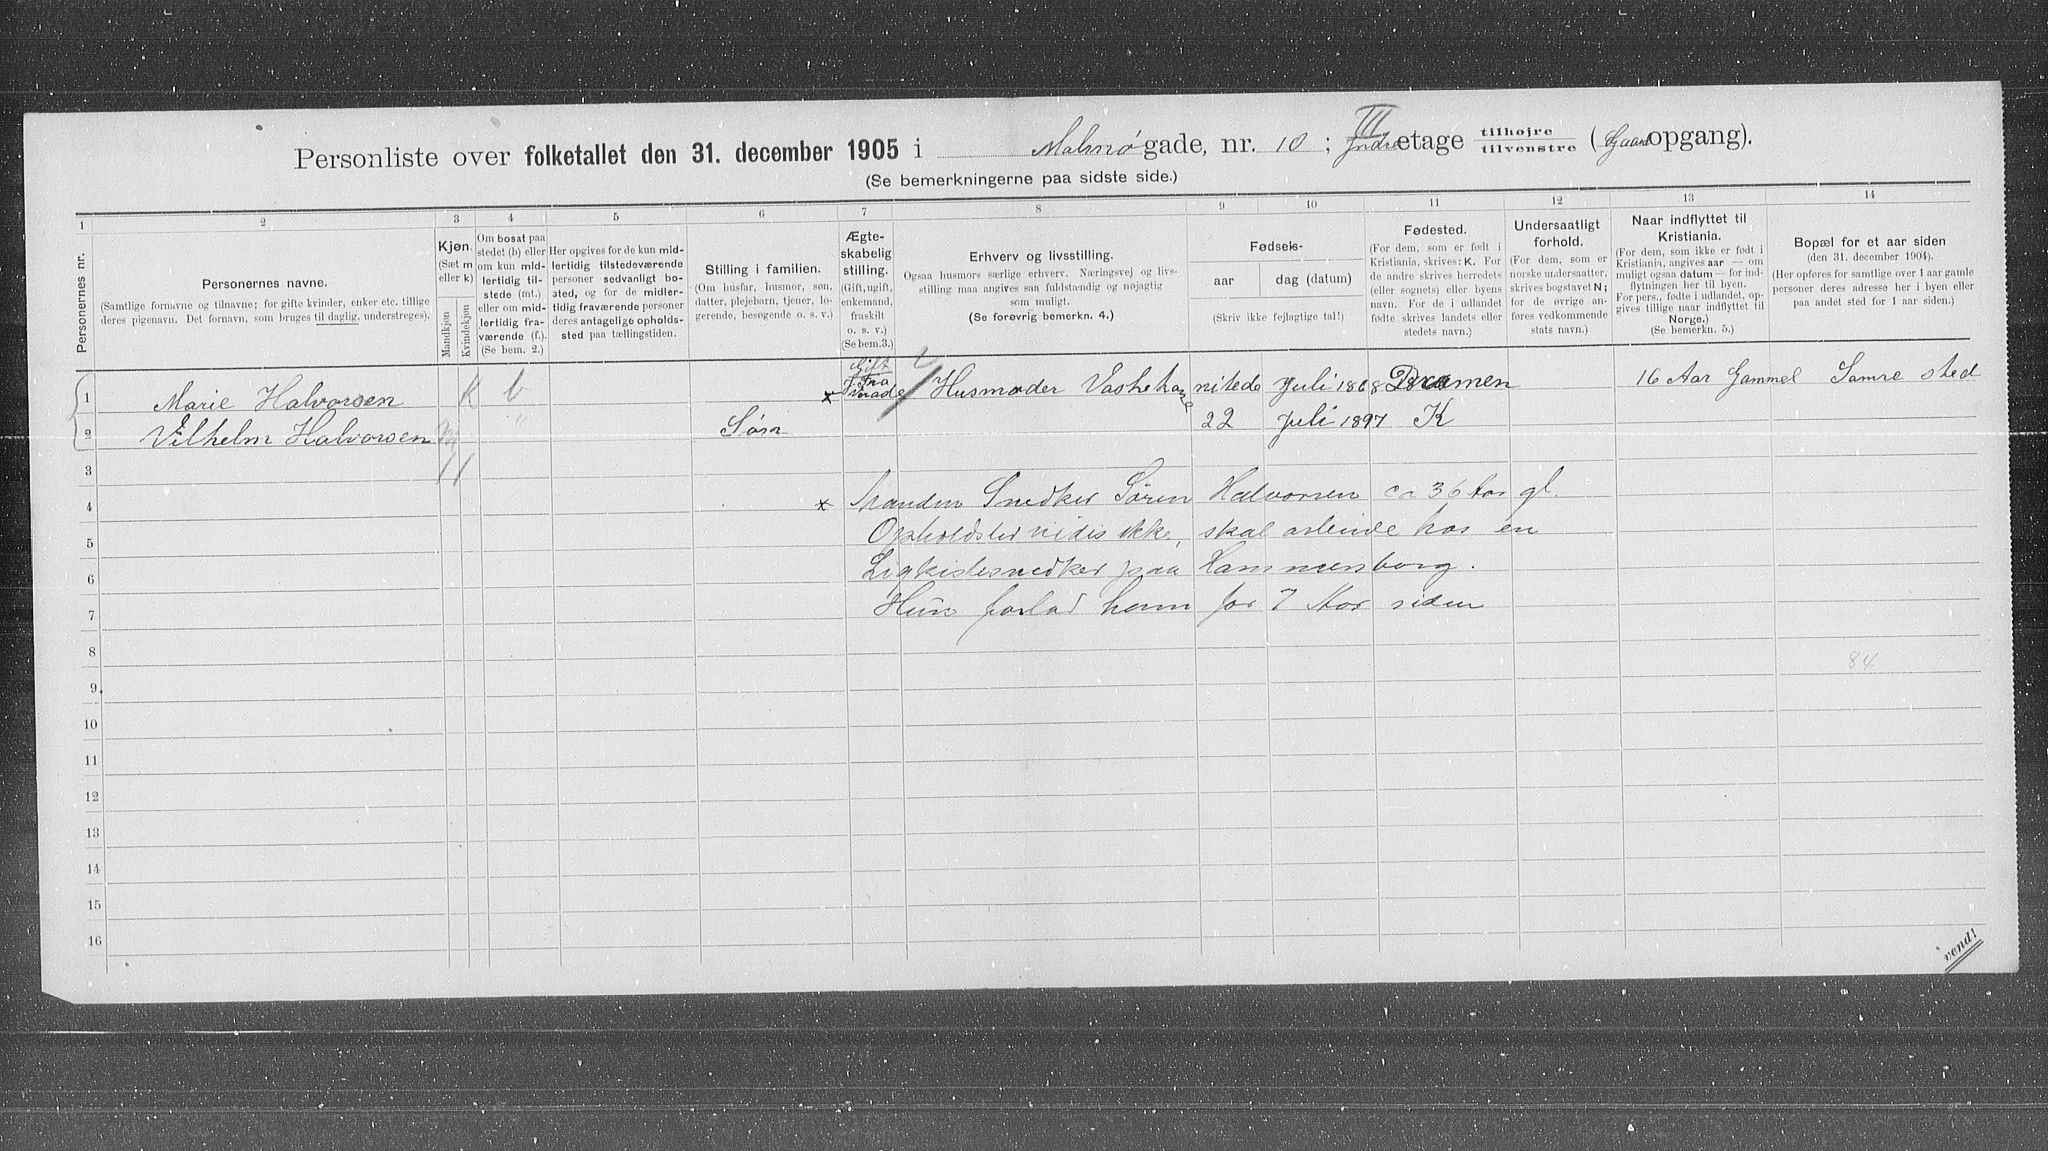 Personliste over folketallet den 31. december 1905 i Malmøgade, nr. 10; III Indre etage tilhøjre tilvenstre (Gaard opgang).
(Se bemerkningerne paa sidste side.)
1 2 3 4 5 6 7 8 9 10 11 12 13 14
Personernes nr.
Personernes navne.
(Samtlige fornavne og tilnavne; for gifte kvinder, enker etc. tillige
deres pigenavn. Det fornavn, som bruges til daglig, understreges).
Kjøn.
(Sæt m
eller k)
Mandkjøn
Kvindekjøn
Om bosat paa
stedet (b) eller
om kun mid-
lertidig til-
stede (mt.)
eller om mid-
lertidig fra-
værende (f.).
(Se bem. 2.)
Her opgives for de kun mid-
lertidig tilstedeværende
personer sedvanligt bo-
sted, og for de midler-
tidig fraværende personer
deres antagelige opholds-
sted paa tællingstiden.
Stilling i familien.
(Om husfar, husmor, søn,
datter, plejebarn, tjener, lo-
gerende, besøgende o. s. v.)
Ægte-
skabelig
stilling.
(Gift, ugift,
enkemand,
fraskilt
o. s. v.)
(Se bem.3.)
Erhverv og livsstilling.
Ogsaa husmors særlige erhverv. Næringsvej og livs-
stilling maa angives saa fuldstændig og nøjagtig
som muligt.
(Se forøvrig bemerkn. 4.)
Fødsels-
aar dag (datum)
(Skriv ikke fejlagtige tal!)
Fødested.
(For dem, som er født i
Kristiania, skrives: K. For
de andre skrives herredets
(eller sognets) eller byens
navn. For de i udlandet
fødte skrives landets eller
stedets navn.)
Undersaatligt
forhold.
(For dem, som er
norske undersaatter,
skrives bogstavet N;
for de øvrige an-
føres vedkommende
stats navn.)
Naar indflyttet til
Kristiania.
(For dem, som ikke er født i
Kristiania, angives aar — om
muligt ogsaa datum — for ind-
flytningen her til byen.
For pers., fødte i udlandet, op-
gives tillige naar indflyttet til
Norge.)
(Se bemerkn. 5.)
Bopæl for et aar siden
(den 31. december 1904).
(Her opføres for samtlige over 1 aar gamle
personer deres adresse her i byen eller
paa andet sted for 1 aar siden.)
Gift
1 Marie Halvorsen K b x Husmoder Vaskekone nitede Juli 1868 Dramen 16 Aar Gammel Samre sted
2 Vilhelm Halvorsen m " Søn 22 Juli 1897 K
3
4 x Manden Snedker Søren Halvorsen ca 36 Aar gl.
5 Opholdsted vides ikke, skal arbeide hos en
6 Ligkistesnedker paa Hammersborg.
7 Hun forlod ham for 7 Aar siden
8
84
9
10
11
12
13
14
15
16
vend!